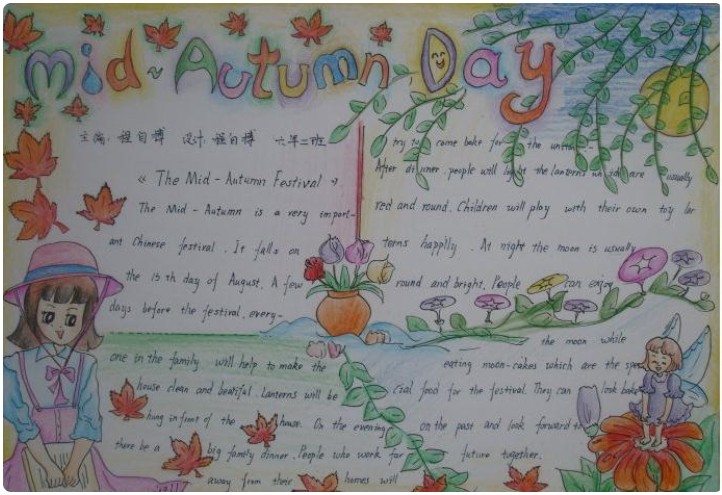 Mid-Autumn Day
主编:程自搏 设计:程自搏 六年二班
《The Mid-Autumn Festival》
The Mid-Autumn is a very import-
ant Chinese festival. It falls on
the 15th day of August. A few
days before the festival, every-
one in the family will help to make the
house clean and beatiful. Lanterns will be
hung in front of the house. On the evening
there be a big family dinner. People who work far
away from their homes will
try to come bake for the
After dinner, people will light the lanterns usually
red and round. Children will play with their own toy lan
terns happily. At night the moon is usually
round and bright. People can enjoy
the moon while
eating moon-cakes which are the spe
cial food for the festival. They can look bake
on the past and look forward to
future together.